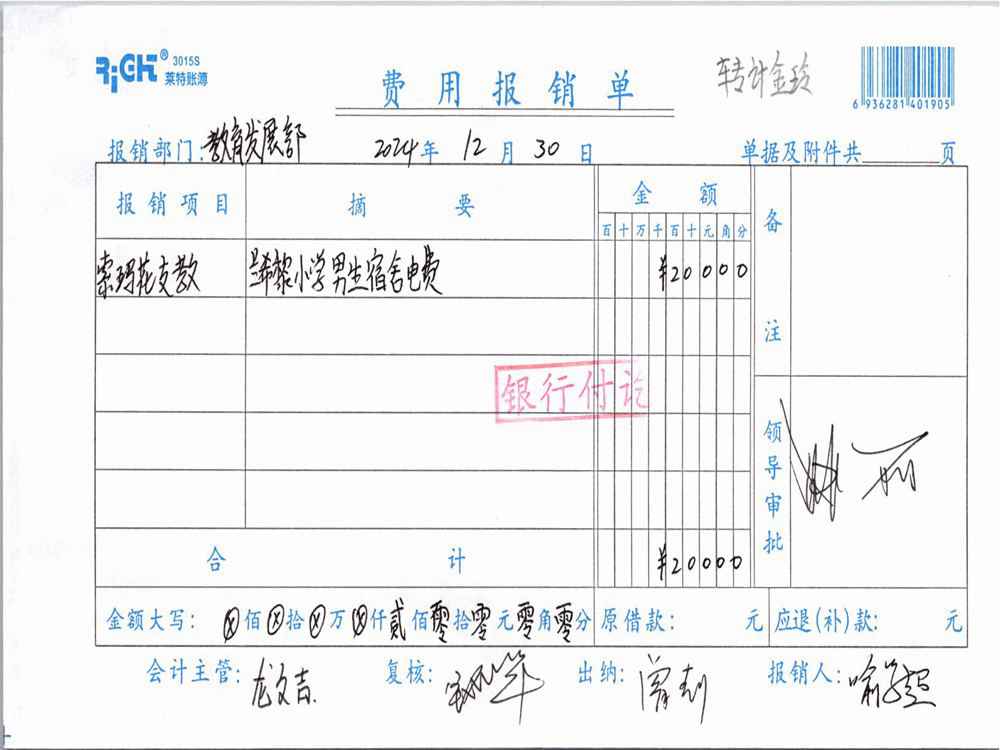 RiGHT® 3015S
莱特账簿
费用报销单
转计金玲
6 936281 401905
报销部门:教育发展部 2024年 12月 30日 单据及附件共 页
报销项目 摘要 金额 备注
百十万千百十元角分
索玛花支教 希黎小学男生宿舍电费 ¥20000
银行付讫
领导审批
合计 ¥20000
金额大写: ⊗佰⊗拾⊗万⊗仟贰佰零拾零元零角零分 原借款: 元 应退(补)款: 元
会计主管: 龙文吉 复核: 出纳: 曾莉 报销人: 喻学超